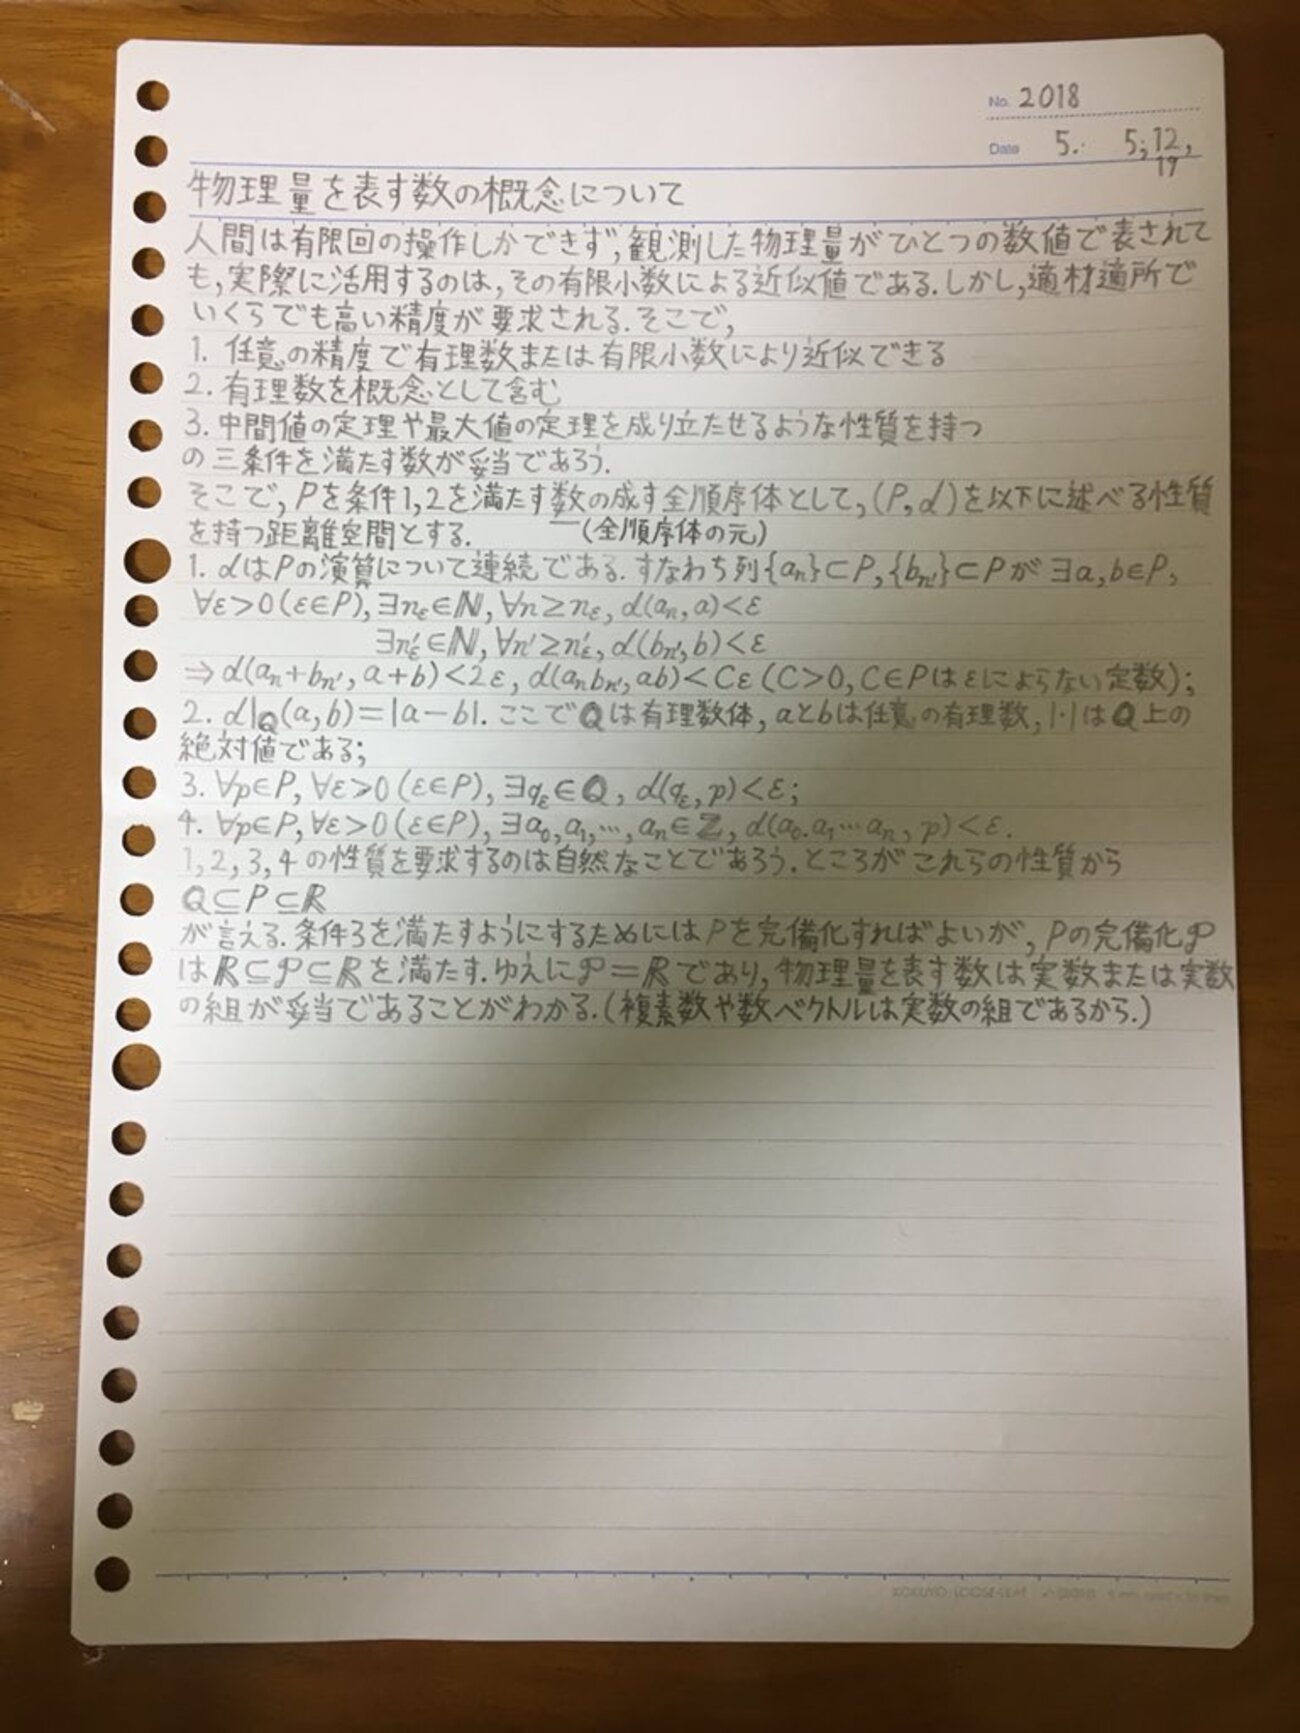 No. 2018
Date 5. 5;12,
19
物理量を表す数の概念について
人間は有限回の操作しかできず,観測した物理量がひとつの数値で表されて
も,実際に活用するのは,その有限小数による近似値である.しかし,適材適所で
いくらでも高い精度が要求される.そこで,
1. 任意の精度で有理数または有限小数により近似できる
2. 有理数を概念として含む
3. 中間値の定理や最大値の定理を成り立たせるような性質を持つ
の三条件を満たす数が妥当であろう.
そこで,Pを条件1,2を満たす数の成す全順序体として,(P,d)を以下に述べる性質
を持つ距離空間とする. (全順序体の元)
1. dはPの演算について連続である.すなわち列{aₙ}⊂P,{bₙ'}⊂Pが∃a,b∈P,
∀ε>0(ε∈P),∃n_ε∈ℕ,∀n≥n_ε,d(aₙ,a)<ε
∃n'_ε∈ℕ,∀n'≥n'_ε,d(bₙ',b)<ε
⇒d(aₙ+bₙ',a+b)<2ε,d(aₙbₙ',ab)<Cε(C>0,C∈Pはεによらない定数);
2. d|ℚ(a,b)=|a-b|.ここでℚは有理数体,aとbは任意の有理数,|・|はℚ上の
絶対値である;
3. ∀p∈P,∀ε>0(ε∈P),∃q_ε∈ℚ,d(q_ε,p)<ε;
4. ∀p∈P,∀ε>0(ε∈P),∃a₀,a₁,…,aₙ∈ℤ,d(a₀.a₁…aₙ,p)<ε.
1,2,3,4の性質を要求するのは自然なことであろう.ところがこれらの性質から
ℚ⊆P⊆ℝ
が言える.条件3を満たすようにするためにはPを完備化すればよいが,Pの完備化𝒫
はℝ⊆𝒫⊆ℝを満たす.ゆえに𝒫=ℝであり,物理量を表す数は実数または実数
の組が妥当であることがわかる.(複素数や数ベクトルは実数の組であるから.)